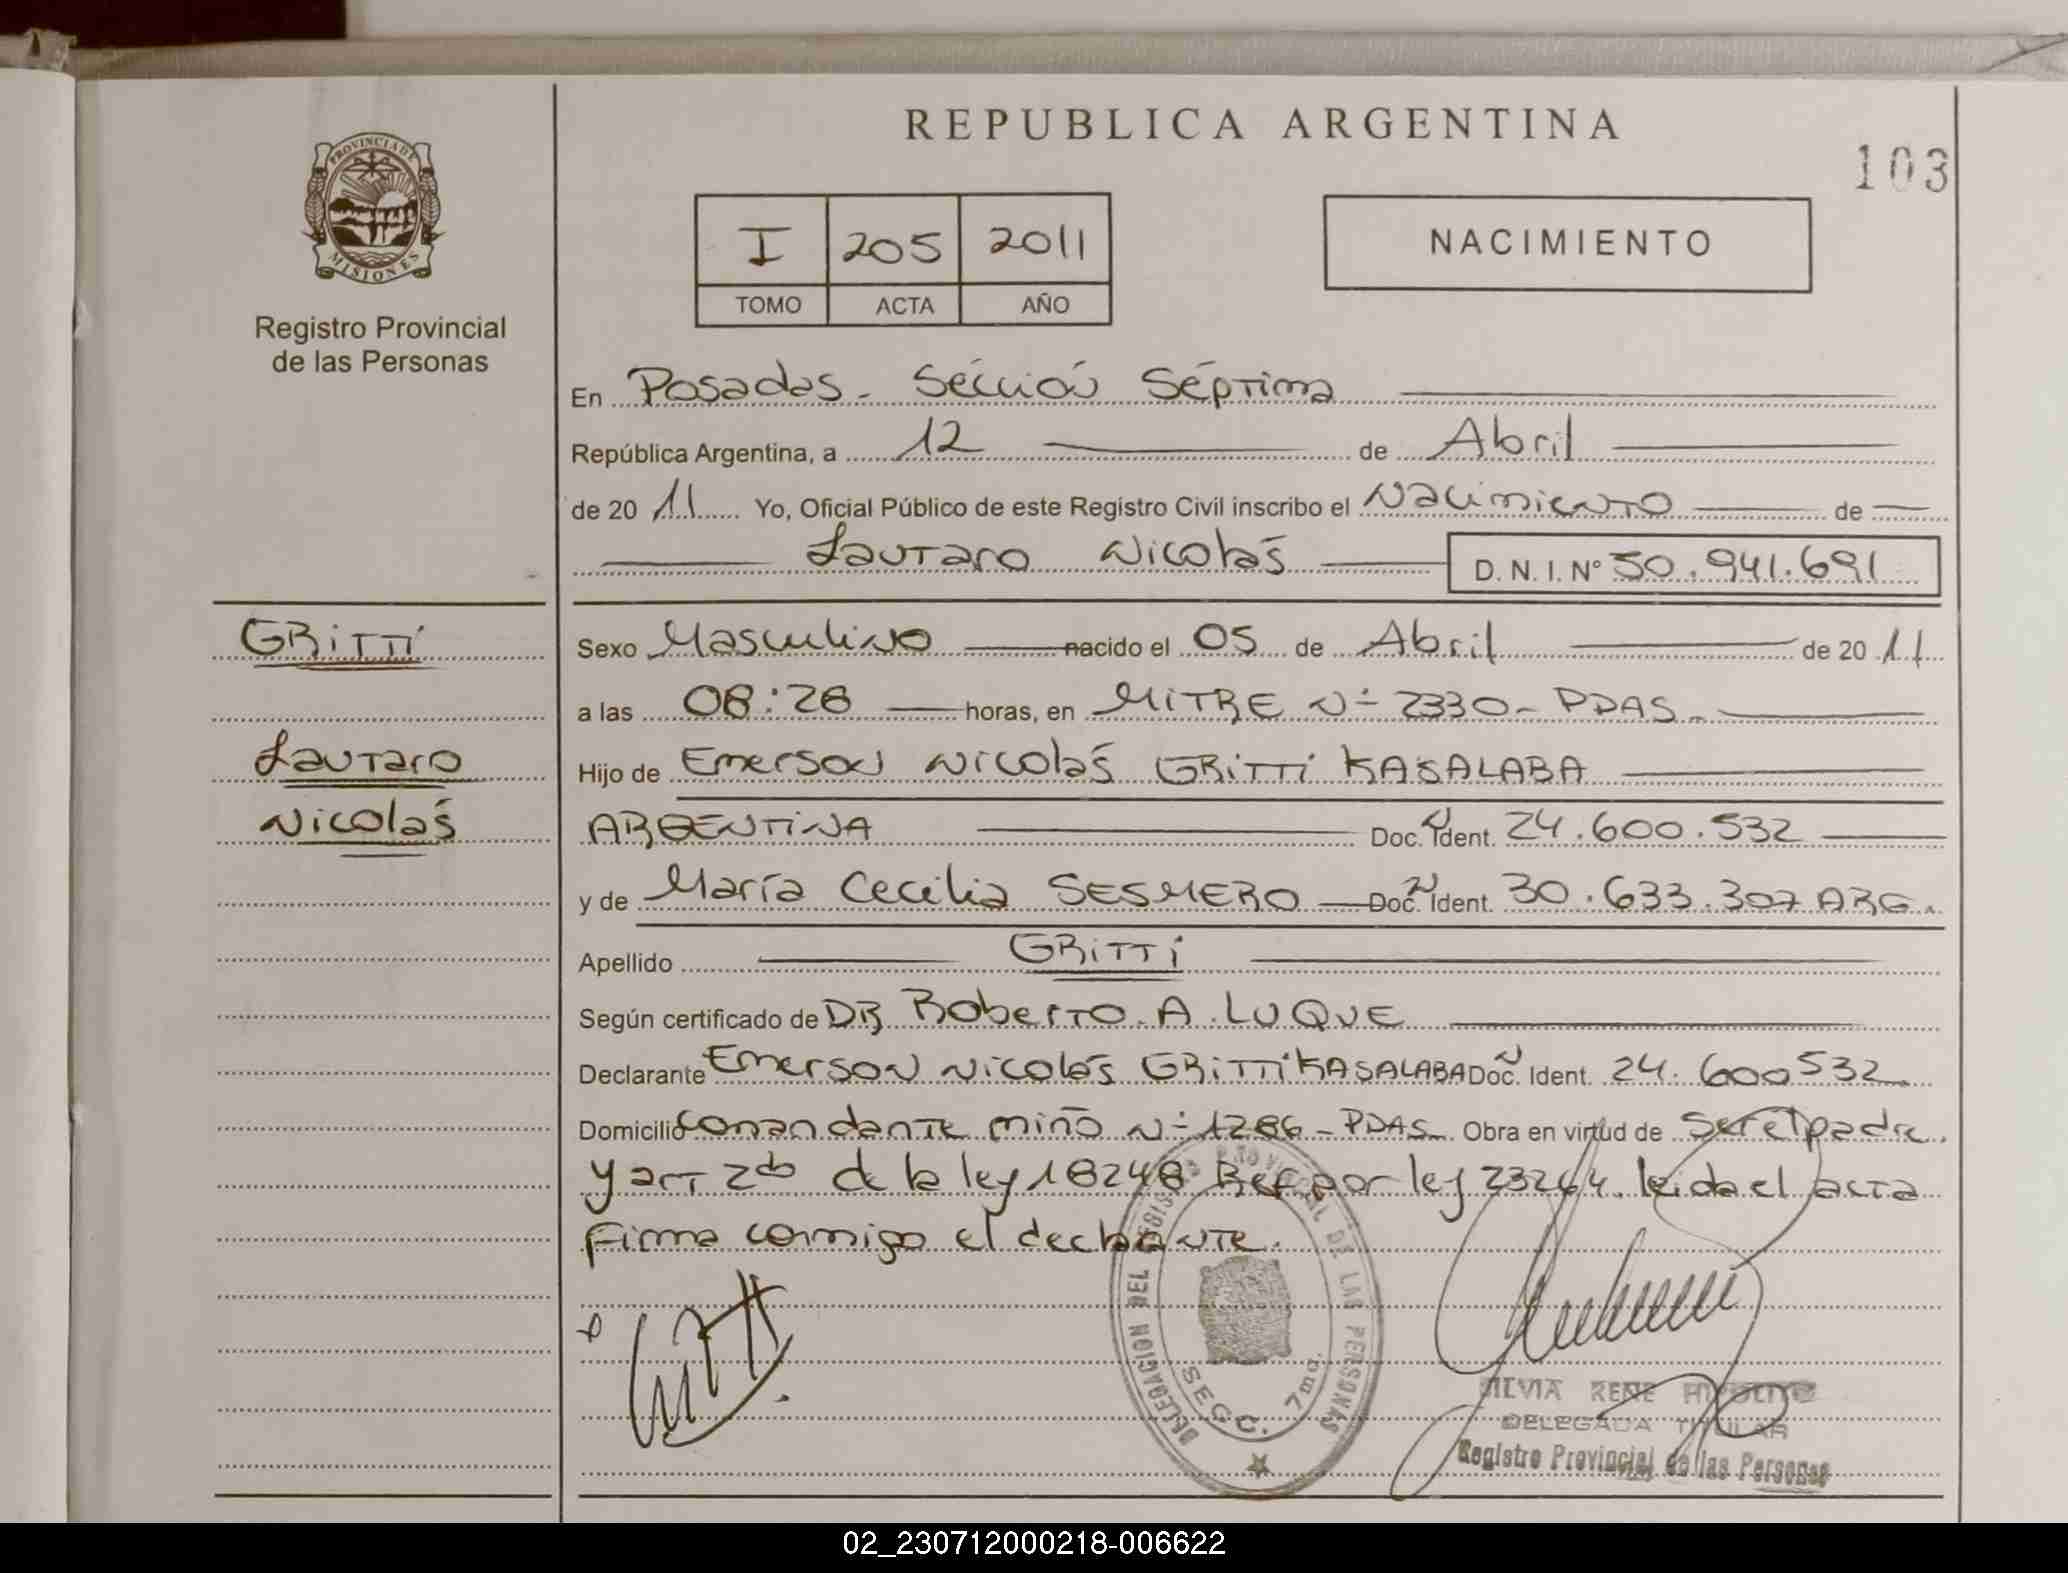 REPUBLICA ARGENTINA
103
PROVINCIA DE
MISIONES
Registro Provincial
de las Personas
I 205 2011
TOMO ACTA AÑO
NACIMIENTO
En Posadas - Sección Séptima
República Argentina, a 12 de Abril
de 2011 Yo, Oficial Público de este Registro Civil inscribo el Nacimiento de
Lautaro Nicolás D. N. I. N° 50.941.691
GRITTI
Lautaro
Nicolás
Sexo Masculino nacido el 05 de Abril de 2011
a las 08:28 horas, en MITRE N° 2330 - PDAS.
Hijo de Emerson Nicolás GRITTI KASALABA
ARGENTINA Doc. Ident. 24.600.532
y de María Cecilia SESMERO Doc. Ident. 30.633.307 ARG.
Apellido GRITTI
Según certificado de DR Roberto A. LUQUE
Declarante Emerson Nicolás GRITTI KASALABA Doc. Ident. 24.600532
Domicilio Comandante miño N° 1286 - PDAS Obra en virtud de ser el padre
y art 2do de la ley 18248 Ref por ley 23264. leida el acta
firma conmigo el declarante.
DELEGACION DEL REGISTRO PROVINCIAL DE LAS PERSONAS
SECC. 7ma.
SILVIA RENE HIPOLITO
DELEGADA TITULAR
Registro Provincial de las Personas
02_230712000218-006622